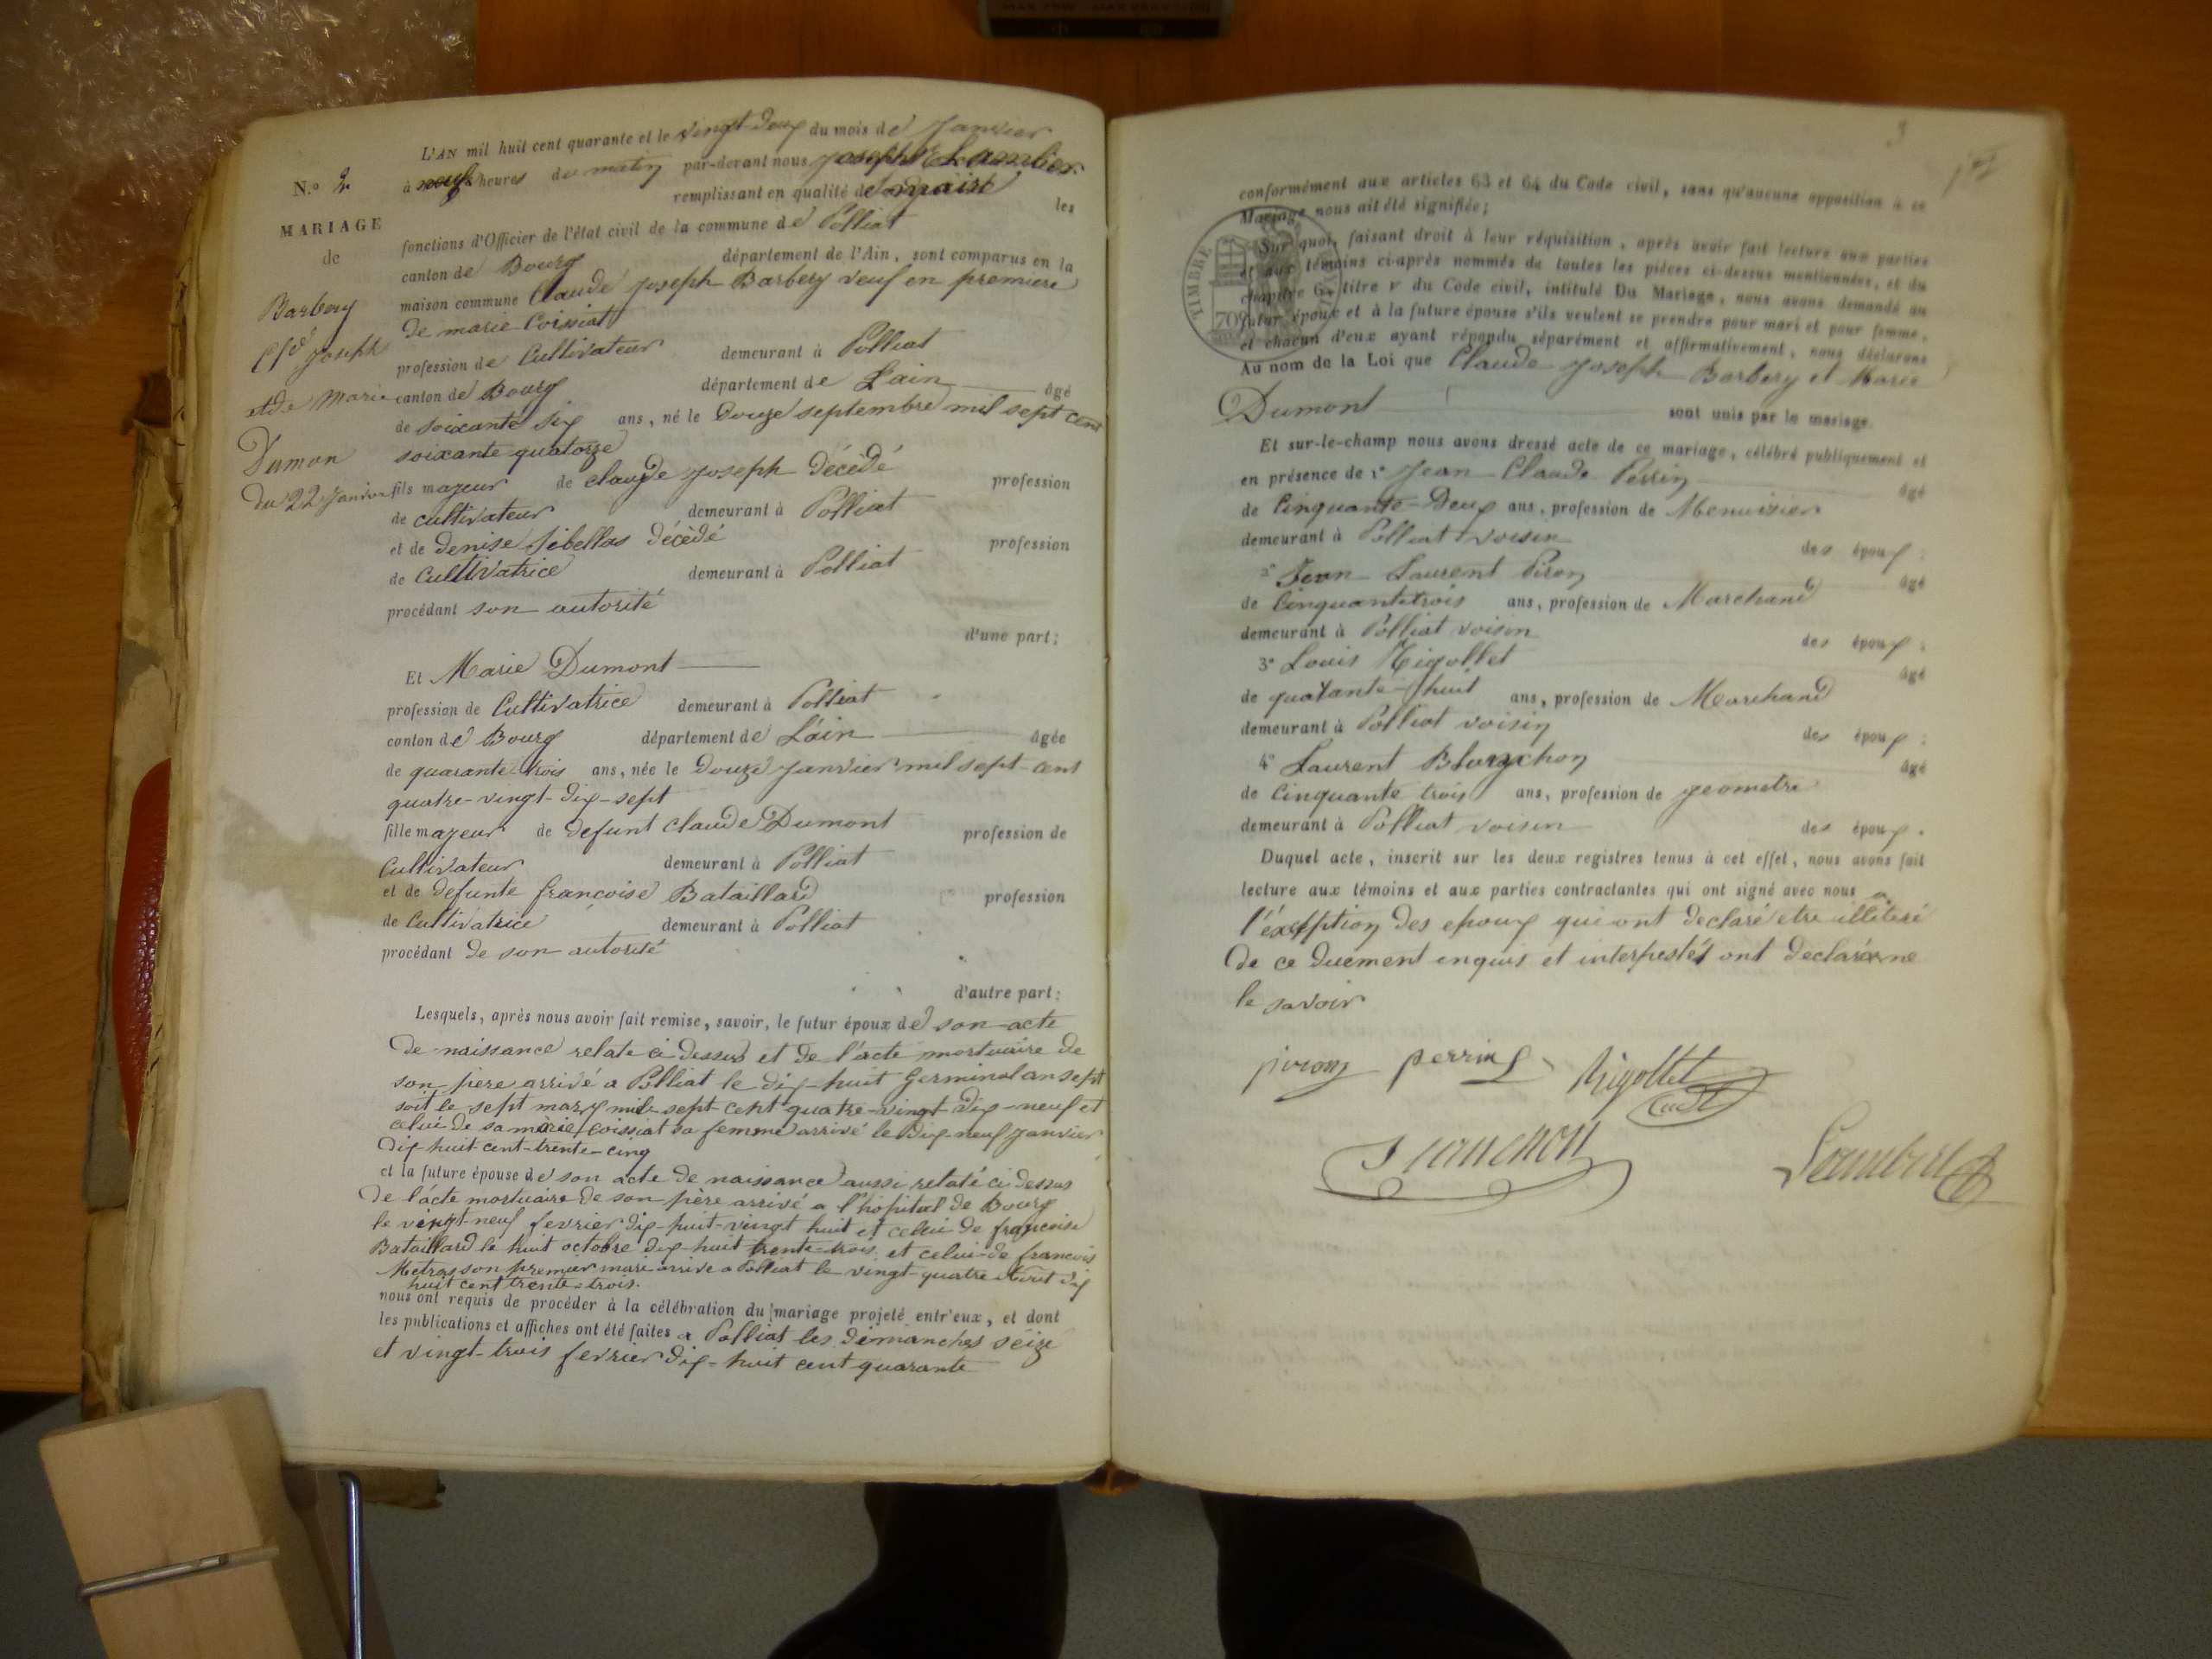 L'AN mil huit cent quarante et le vingt-deux du mois de Janvier
à neuf heures du matin par-devant nous Joseph Lambier
remplissant en qualité de maire les
fonctions d'Officier de l'état civil de la commune de Polliat
canton de Bourg département de l'Ain, sont comparus en la
maison commune Claude Joseph Barbery veuf en premiere
de marie Coissiat
profession de Cultivateur demeurant à Polliat
canton de Bourg département de Lain âgé
de soixante six ans, né le Douze septembre mil sept cent
soixante quatorze
fils majeur de claude Joseph Décèdé profession
de cultivateur demeurant à Polliat
et de denise Sibellas décèdé profession
de Cultivatrice demeurant à Polliat
procédant son autorité
d'une part;
N.º 2
MARIAGE
de
Barbery
Cl.d Joseph
et de Marie
Dumon
du 22 Janvier
Et Marie Dumont
profession de Cultivatrice demeurant à Polliat
canton de Bourg département de Láin âgée
de quarante-trois ans, née le Douze Janvier mil sept cent
quatre-vingt-dix-sept
fille majeur de defunt claude Dumont profession de
Cultivateur demeurant à Polliat
et de defunte francoise Bataillard profession
de Cultivatrice demeurant à Polliat
procédant de son autorité
d'autre part:
Lesquels, après nous avoir fait remise, savoir, le futur époux de son acte
De naissance relate ci dessus et de l'acte mortuaire de
son pere arrivé a Polliat le dix huit Germinal an sept
soit le sept mars mil sept cent quatre-vingt dix-neuf et
celui de sa marie coissiat sa femme arrivé le Dix neuf Janvier
Dix huit cent-trente-cinq
et la future épouse de son acte de naissance aussi relaté ci dessus
De l'acte mortuaire de son père arrivé a l'hopital de Bourg
le vingt-neuf fevrier dix-huit-vingt huit et celui de françoise
Bataillard le huit octobre dix-huit trente-trois et celui de francois
Metras son premier mari arrive a Polliat le vingt-quatre dix
huit cent trente-trois.
nous ont requis de procéder à la célébration du mariage projeté entr'eux, et dont
les publications et affiches ont été faites a Polliat les dimanches seize
et vingt-trois fevrier dix-huit cent quarante
3
conformément aux articles 63 et 64 du Code civil, sans qu'aucune opposition à ce
Mariage nous ait été signifiée;
Sur quoi, faisant droit à leur réquisition, après avoir fait lecture aux parties
et aux témoins ci-après nommés de toutes les pièces ci-dessus mentionnées, et du
chapitre 6, titre v du Code civil, intitulé Du Mariage, nous avons demandé au
futur époux et à la future épouse s'ils veulent se prendre pour mari et pour femme,
et chacun d'eux ayant répondu séparément et affirmativement, nous déclarons
Au nom de la Loi que Claude Joseph Barbery et Marie
Dumont sont unis par le mariage.
TIMBRE
70
Et sur-le-champ nous avons dressé acte de ce mariage, célébré publiquement et
en présence de 1º Jean Claude Perrin âgé
de Cinquante-Deux ans, profession de Menuisier
demeurant à Polliat voisin des époux;
2º Jean Laurent Piron âgé
de Cinquante trois ans, profession de Marchand
demeurant à Polliat voison des époux;
3º Louis Rigollet âgé
de quarante-huit ans, profession de Marchand
demeurant à Polliat voisin des époux;
4º Laurent âgé
de Cinquante trois ans, profession de geometre
demeurant à Polliat voisin des époux.
Duquel acte, inscrit sur les deux registres tenus à cet effet, nous avons fait
lecture aux témoins et aux parties contractantes qui ont signé avec nous a
l'éxception des epoux qui ont declaré etre illiteré
De ce duement enquis et interpestés ont declaré ne
le savoir
piron perrin Rigollet